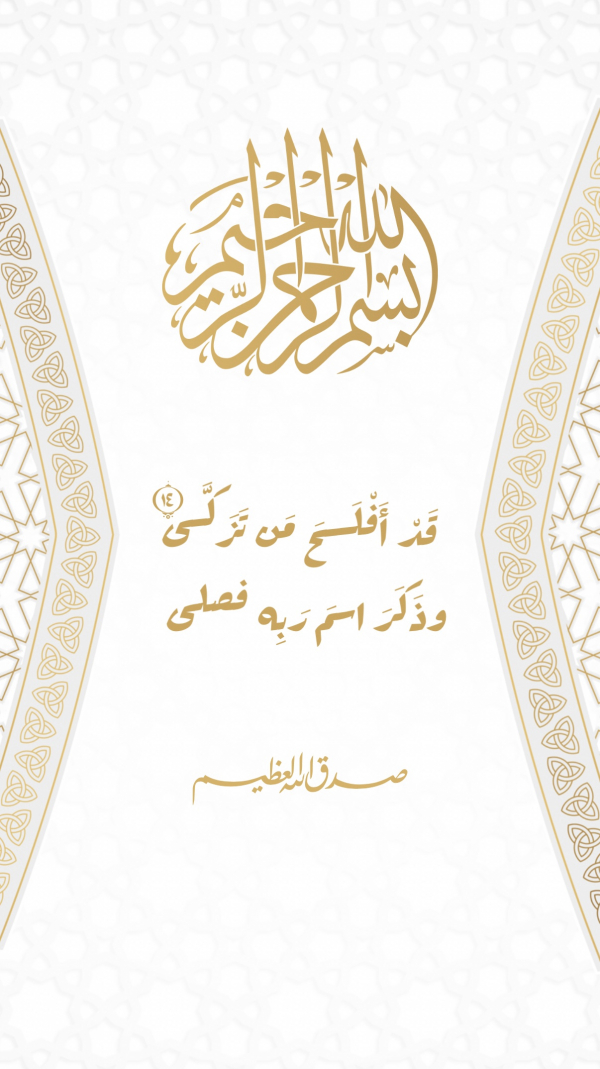 بسم الله الرحمن الرحيم
قَدْ أَفْلَحَ مَن تَزَكَّىٰ ١٤
وذَكَرَ اسمَ رَبِهِ فصلى
صدق الله العظيم